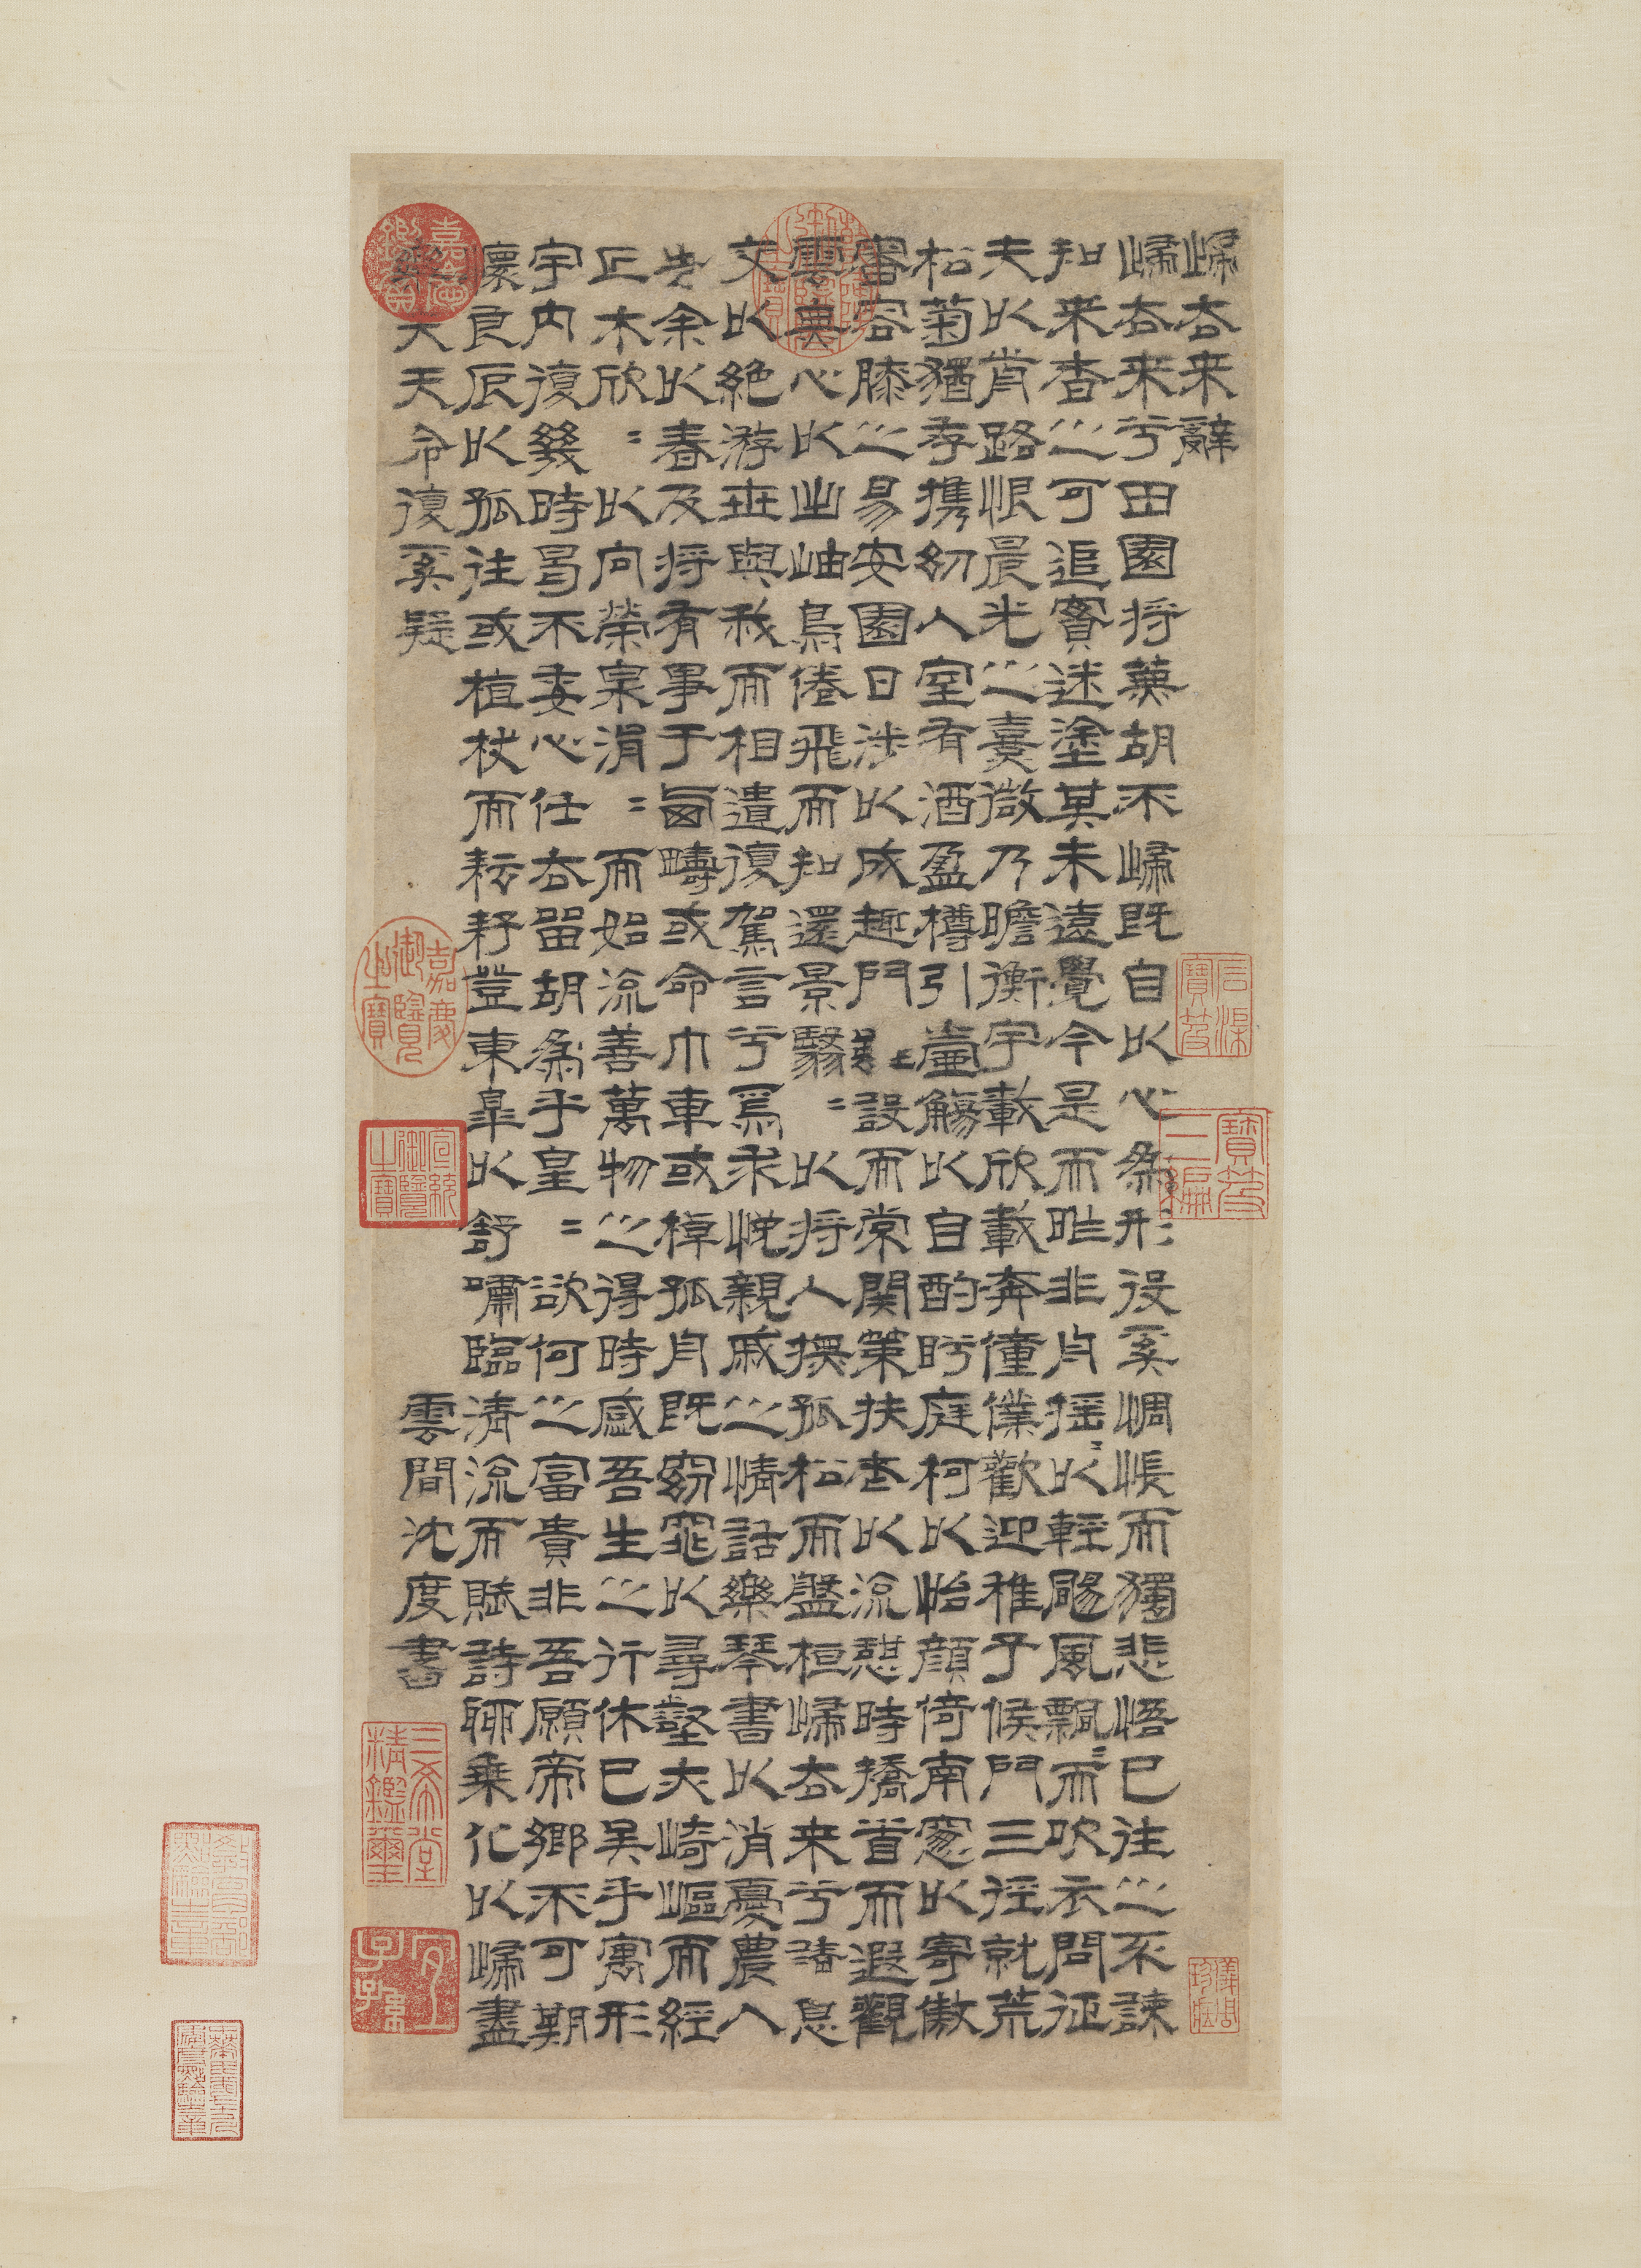 歸去来辭
歸去来兮田園将蕪胡不歸既自以心為形役奚惆悵而獨悲悟已往之不諫
知来者之可追實迷塗其未遠覺今是而昨非舟摇〻以輕颺風飄〻而吹衣問征
夫以前路恨晨光之熹微乃瞻衡宇載欣載奔僮僕歡迎稚子候門三徑就荒
松菊猶存携幼入室有酒盈樽引壺觴以自酌眄庭柯以怡顔倚南窓以寄傲
審容膝之易安園日涉以成趣門雖設而常關策扶老以流憩時矯首而遐觀
雲無心以出岫鳥倦飛而知還景翳〻以将入撫孤松而盤桓歸去来兮請息
交以絶游世與我而相遺復駕言兮焉求悦親戚之情話樂琴書以消憂農人
告余以春及将有事于西疇或命巾車或棹孤舟既窈窕以尋壑亦崎嶇而經
丘木欣〻以向榮泉涓〻而始流善萬物之得時感吾生之行休已矣乎寓形
宇内復幾時曷不委心任去留胡為乎皇〻欲何之富貴非吾願帝鄉不可期
懷良辰以孤往或植杖而耘耔登東皋以舒嘯臨清流而賦詩聊乗化以歸盡
樂夫天命復奚疑 雲間沈度書
石渠寶笈
寶笈三編
儀周珍藏
乾隆御覽之寶
嘉慶鑑賞
嘉慶御覽之寶
宣統御覽之寶
三希堂精鑑璽
宜子孫